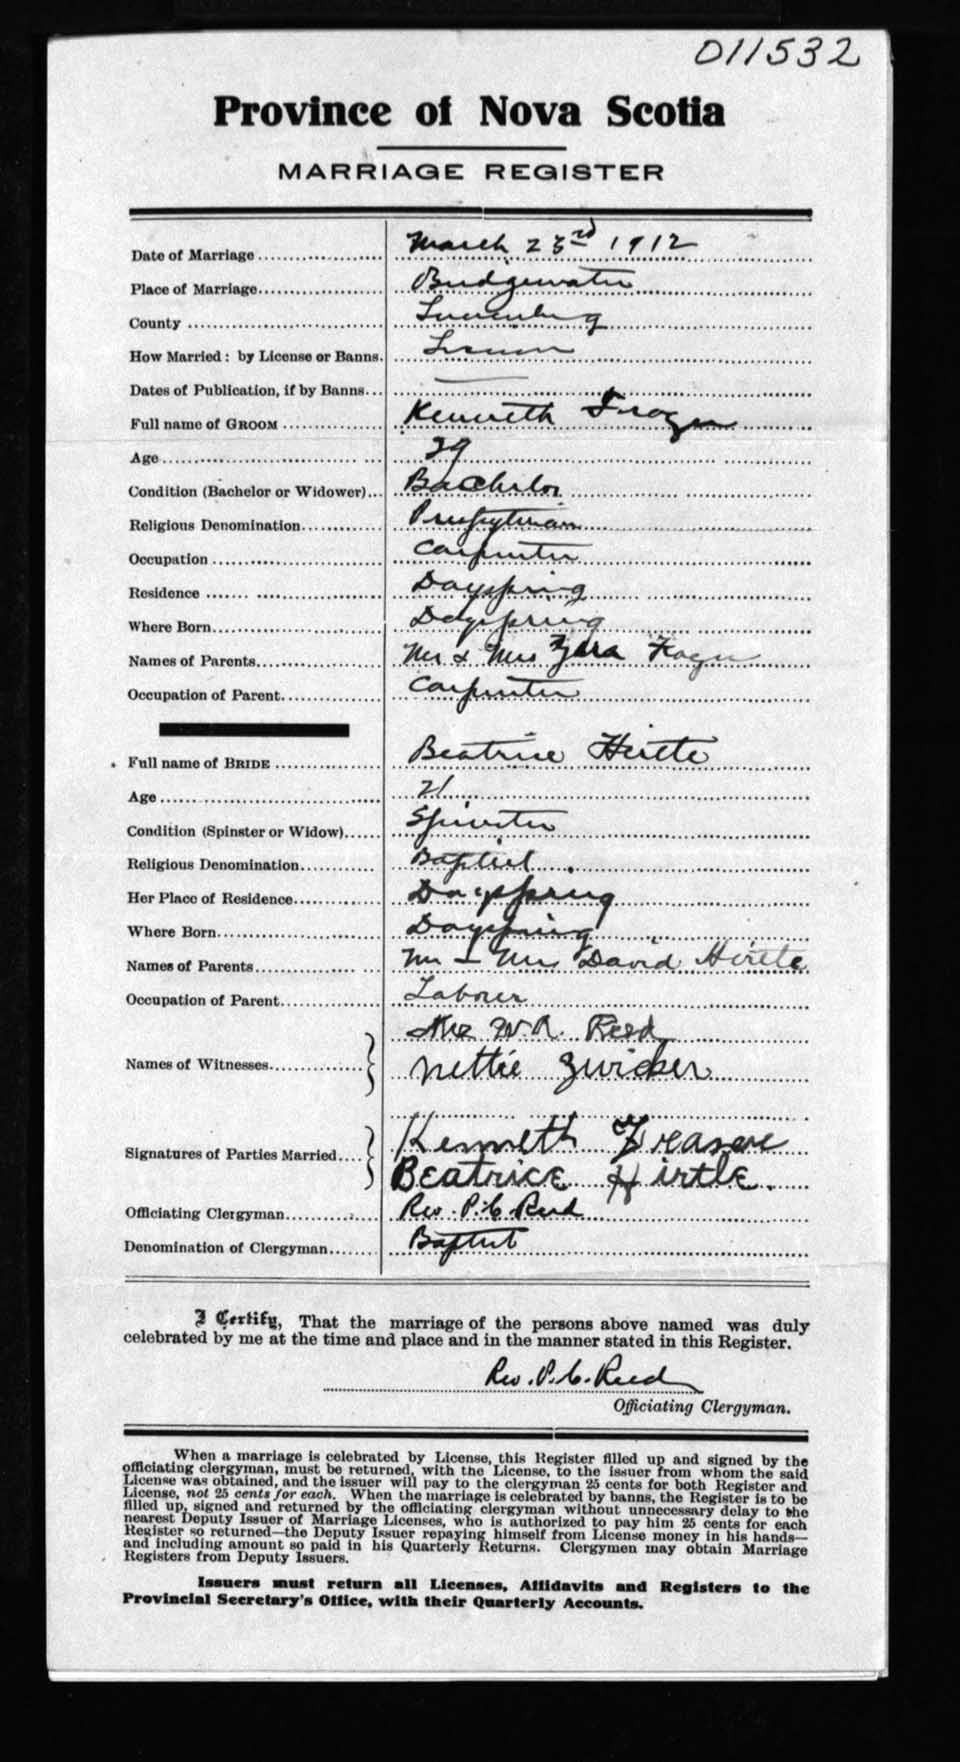 011532
Province of Nova Scotia
MARRIAGE REGISTER
Date of Marriage March 23rd 1912
Place of Marriage Bridgewater
County Lunenburg
How Married: by License or Banns. License
Dates of Publication, if by Banns
Full name of GROOM Kenneth
Age 29
Condition (Bachelor or Widower) Bachelor
Religious Denomination Presbyterian
Occupation Carpenter
Residence Dayspring
Where Born Dayspring
Names of Parents Mr & Mrs
Occupation of Parent Carpenter
Full name of BRIDE Beatrice Hirtle
Age 21
Condition (Spinster or Widow) Spinster
Religious Denomination Baptist
Her Place of Residence Dayspring
Where Born Dayspring
Names of Parents Mr & Mrs David Hirtle
Occupation of Parent Labourer
Mrs W.R. Reed
Names of Witnesses Nettie Zwicker
Kenneth
Signatures of Parties Married
Beatrice Hirtle.
Officiating Clergyman Rev. P.C. Reed
Denomination of Clergyman Baptist
I Certify, That the marriage of the persons above named was duly
celebrated by me at the time and place and in the manner stated in this Register.
Rev. P.C. Reed
Officiating Clergyman.
When a marriage is celebrated by License, this Register filled up and signed by the
officiating clergyman, must be returned, with the License, to the issuer from whom the said
License was obtained, and the issuer will pay to the clergyman 25 cents for both Register and
License, not 25 cents for each. When the marriage is celebrated by banns, the Register is to be
filled up, signed and returned by the officiating clergyman without unnecessary delay to the
nearest Deputy Issuer of Marriage Licenses, who is authorized to pay him 25 cents for each
Register so returned—the Deputy Issuer repaying himself from License money in his hands—
and including amount so paid in his Quarterly Returns. Clergymen may obtain Marriage
Registers from Deputy Issuers.
Issuers must return all Licenses, Affidavits and Registers to the
Provincial Secretary's Office, with their Quarterly Accounts.